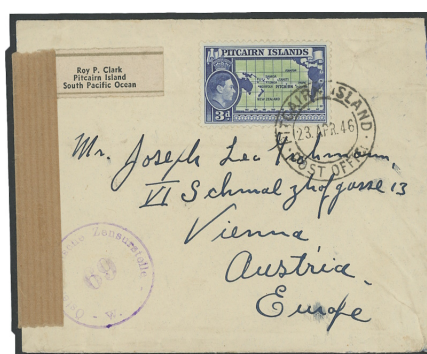 Roy P. Clark
Pitcairn Island
South Pacific Ocean
PITCAIRN ISLANDS
3d
PITCAIRN ISLAND
23. APR. 46
POST OFFICE
Mr. Joseph Leo
VI Schmalzhofgasse 13
Vienna
Austria
Europe
Zensurstelle
69